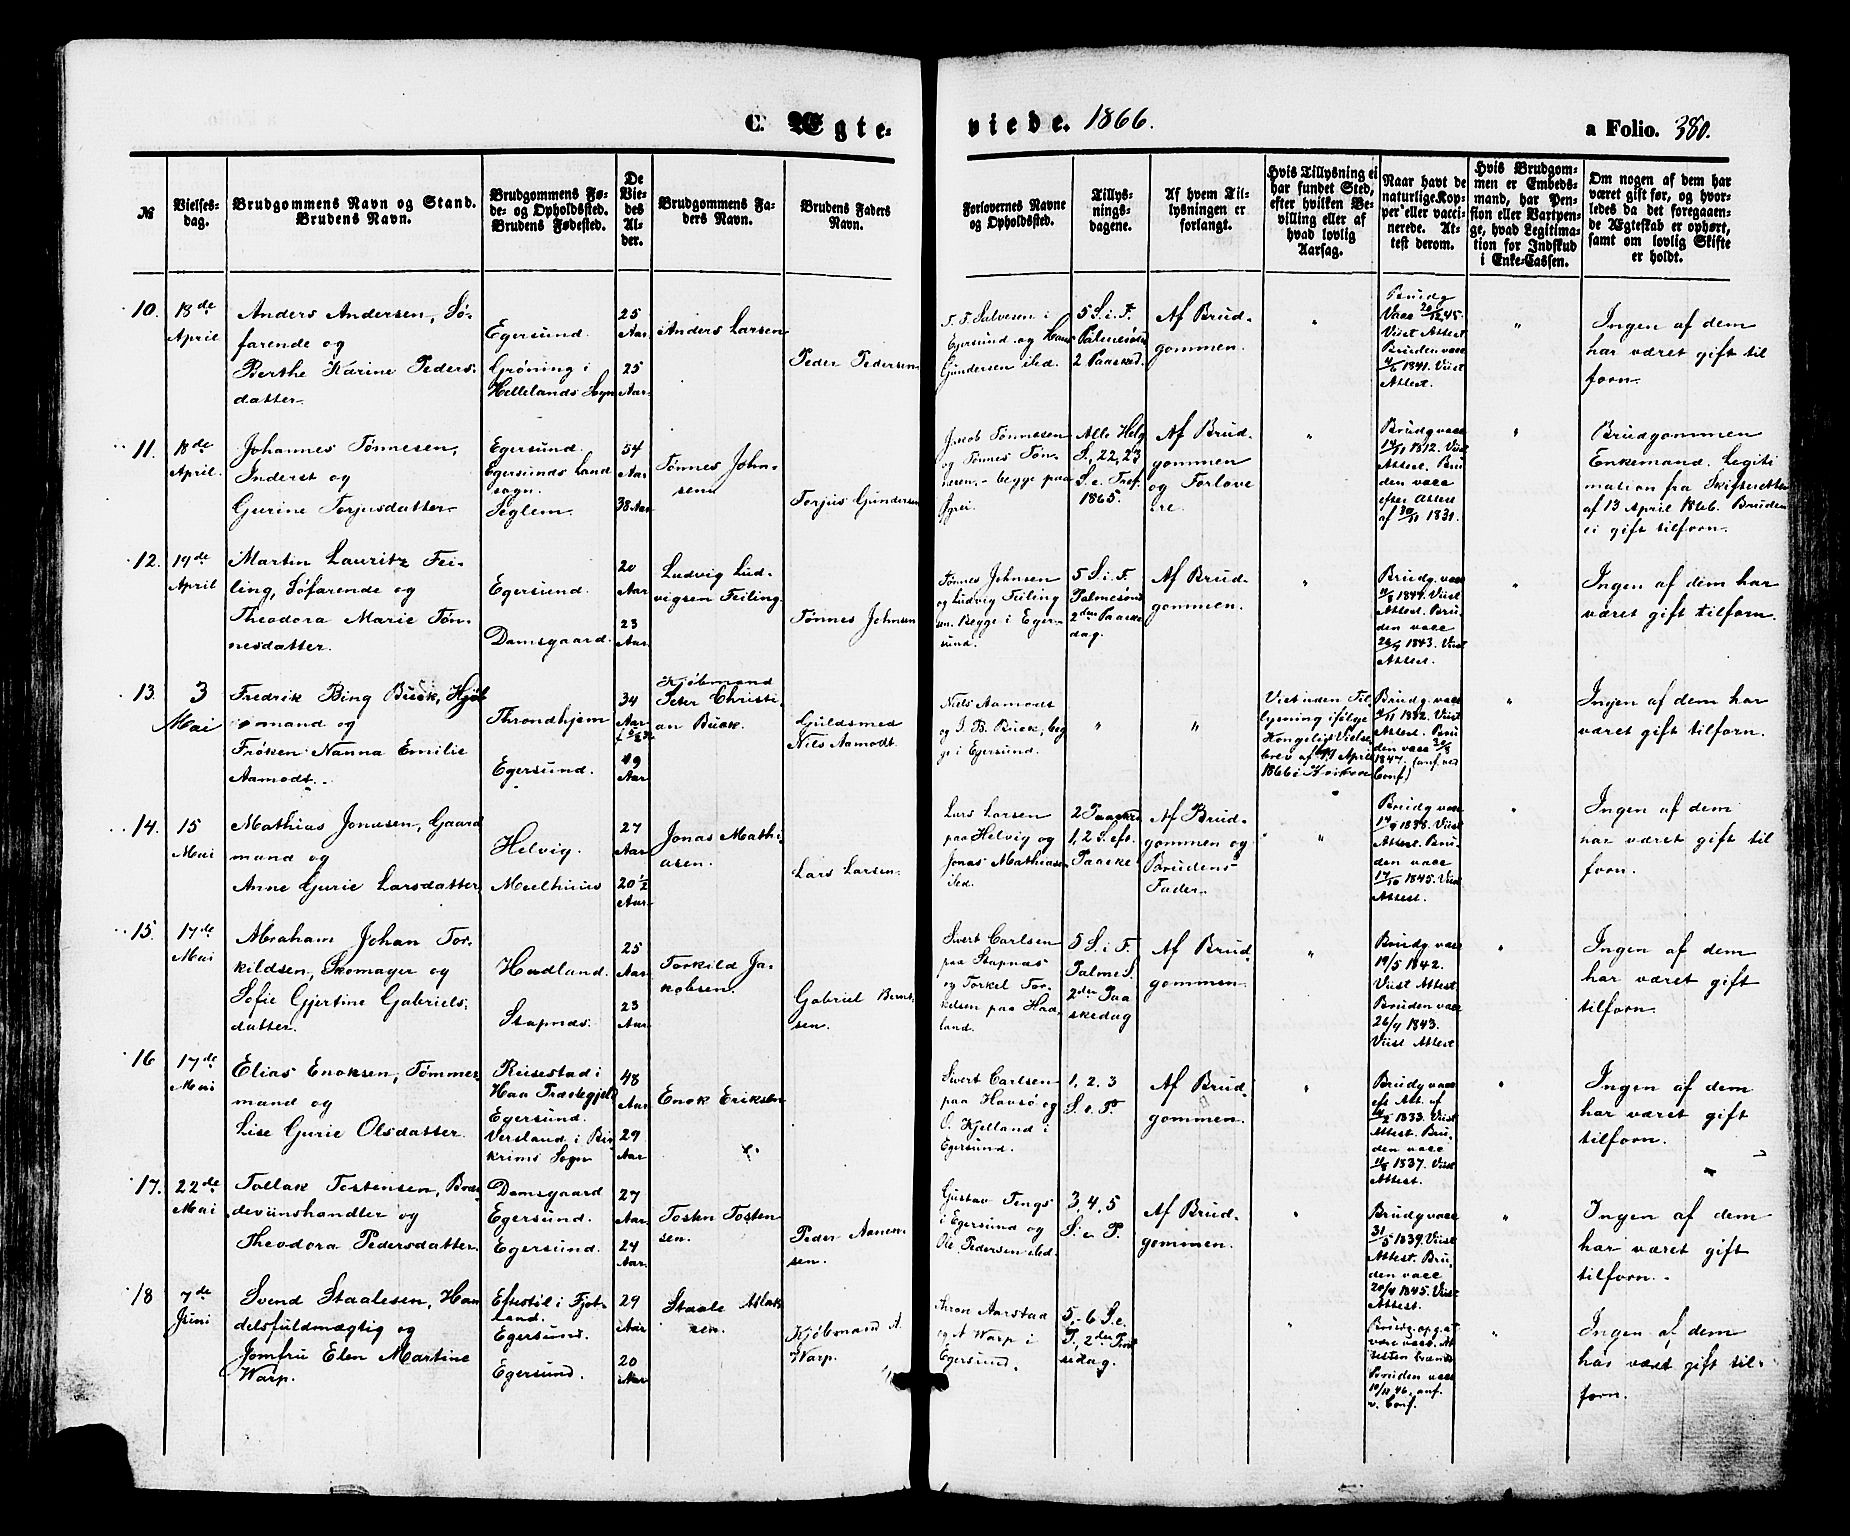 C. Ægte-
viede. 1866.
a Folio. 380.
№
Vielses-
dag.
Brudgommens Navn og Stand.
Brudens Navn.
Brudgommens Fø-
de- og Opholdssted.
Brudens Fødested.
De
Vie-
des
Al-
der.
Brudgommens Fa-
ders Navn.
Brudens Faders
Navn.
Forlovernes Navne
og Opholdssted.
Tillys-
nings-
dagene.
Af hvem Til-
lysningen er
forlangt.
Hvis Tillysning ei
har fundet Sted,
efter hvilken Be-
villing eller af
hvad lovlig
Aarsag.
Naar havt de
naturlige Kop-
per eller vacci-
nerede. At-
test derom.
Hvis Brudgom-
men er Embeds-
mand, har Pen-
sion eller Vartpen-
ge, hvad Legitima-
tion for Indskud
i Enke-Cassen.
Om nogen af dem har
været gift før, og hvor-
ledes da det foregaaen-
de Ægteskab er ophørt,
samt om lovlig Skifte
er holdt.
10.
18de
April
Anders Andersen, Sø-
farende og
Berthe Karine Peders-
datter.
Egersund.
Grøning i
Hellelands Sogn
25
Aar
25
Aar
Anders Larsen
Peder Pedersen
T. F. Salvesen i
Egersund og Hans
Gundersen ibd.
5 S. i. F.
Palmesøn
2 Paaskd.
Af Brud-
gommen.
"
Brudg
Vacc 45.
Viist Attest
Bruden vacc
1841. Viist
Attest.
"
Ingen af dem
har været gift til
forn.
11.
18de
April
Johannes Tønnesen,
Inderst og
Gurine Torjusdatter
Egersund.
Egersunds Land
sogn.
Seglem.
54
Aar
38 Aar
Tønnes John-
sen
Torjus Gundersen
Jacob Tønnesen
og Tønnes Tøn-
nesen, - begge paa
Alle Helg
S., 22, 23
S. e. Tref.
1865.
Af Brud-
gommen
og Forlove
re.
"
Brudg vacc
14/11 1812. Viist
Attest. Bru
den vacc
efter Attest
af 30/11 1831.
"
Brudgommen
Enkemand. Legiti
mation fra Skifteretten
af 13 April 1866. Bruden
ei gift tilforn.
12.
19de
April
Martin Lauritz Fei-
ling, Søfarende og
Theodora Marie Tøn-
nesdatter.
Egersund.
Damsgaard.
20
Aar
23
Aar
Ludvig Lud-
vigsen Feiling
Tønnes Johnsen
Tønnes Johnsen
og Ludvig Feiling
Begge i Eger-
sund.
5 S. i. F.
Palmesønd
2den Paaske
dag.
Af Brud-
gommen.
"
Brudg. vacc
1847. Viist
Attest. Bru-
den vacc
1843. Viist
Attest.
"
Ingen af dem har
været gift tilforn.
13.
3
Mai
Fredrik Bing Buck, Kjøb
mand og
Frøken Nanna Emilie
Aamodt.
Throndhjem
Egersund.
34
Aar
19
Aar
Kjøbmand
Peter Christi-
an Buck.
Guldsmed
Nils Aamodt.
Nils Aamodt
og J. B. Buck, beg
ge i Egersund.
"
"
Viet uden Til
lysning ifølge
Kongeligt Vielse
brev af April
1866 i Kirken
Brudg. vacc
1832. Viist
Attest. Bru
den vacc
1847. (anf. ved
Conf)
"
Ingen af dem har
været gift tilforn.
14.
15
Mai
Mathias Jonasen, Gaard
mand og
Anne Gurie Larsdatter
Helvig.
27
Aar
20 1/2
Aar
Jonas Mathi-
asen.
Lars Larsen.
Lars Larsen
paa Helvig og
Jonas Mathiasen
ibd.
2 Paaske
1, 2 S. eft.
Paaske
Af Brud-
gommen og
Brudens
Fader.
"
Brudg vacc
1838. Viist
Attest. Bru
den vacc
17/10 1845. Viist
Attest.
"
Ingen af dem
har været gift til
forn.
15.
17de
Mai
Abraham Johan Tor-
kildsen, Skomager og
Sofie Gjertine Gabriels-
datter.
Hadland.
Stapnæs.
25
Aar
23
Aar
Torkild Ja-
kobsen.
Gabriel Bernt-
sen.
Sivert Carlsen
paa Stapnæs
og Torkel Tor-
kelsen paa Had
land.
5 S. i. F.
Palme S.
2den Paa
skedag
Af Brud-
gommen.
"
Brudg. vacc
19/5 1842.
Viist Attest.
Bruden vacc
26/9 1843.
Viist Attest
"
Ingen af dem
har været gift
tilforn.
16
17de
Mai
Elias Enoksen, Tømmer
mand og
Lise Gurie Olsdatter.
Reisestad i
Haa Præstegjeld
Egersund.
Versland i Bir
krims Sogn
48
Aar
29
Aar
Enok Eriksen
Sivert Carlsen
paa Havsø og
O. Kjelland i
Egersund.
1, 2, 3
S. e. P.
Af Brud-
gommen.
"
Brudg vacc
eft Att. af
1833. Viist
Attest. Bru-
den vacc
1837. Viist
Attest.
"
Ingen af dem
har været gift
tilforn.
17.
22de
Mai
Tollak Tostensen, Bræn-
deviinshandler og
Theodora Pedersdatter.
Damsgaard
Egersund.
Egersund.
27
Aar
24
Aar
Tosten Tosten
sen.
Peder Aanen-
sen.
Gustav Tengs
i Egersund og
Ole Pedersen ibd.
3, 4, 5
S. e. P.
Af Brud-
gommen.
"
Brudg vacc
31/5 1839. Viist
Attest. Bru,
den vacc
20/9 1845. Viist
Attest.
"
Ingen af dem
har været gift
tilforn.
18
7de
Juni
Svend Staalesen, Han
delsfuldmægtig og
Jomfru Elen Martine
Warp.
Eftestøl i Fjot-
land.
Egersund.
Egersund.
29
Aar
20
Aar
Staale Atlak
sen.
Kjøbmand A.
Warp.
Aarstad
og A Warp i
Egersund.
5,- 6 S. e.
P., 2den Pint
sedag.
"
Brudg. opg. at
være vacc. At
testen brændt
Bruden vacc
10/11 46. anf.
v. Conf.
"
Ingen af dem
har været gift til-
forn.